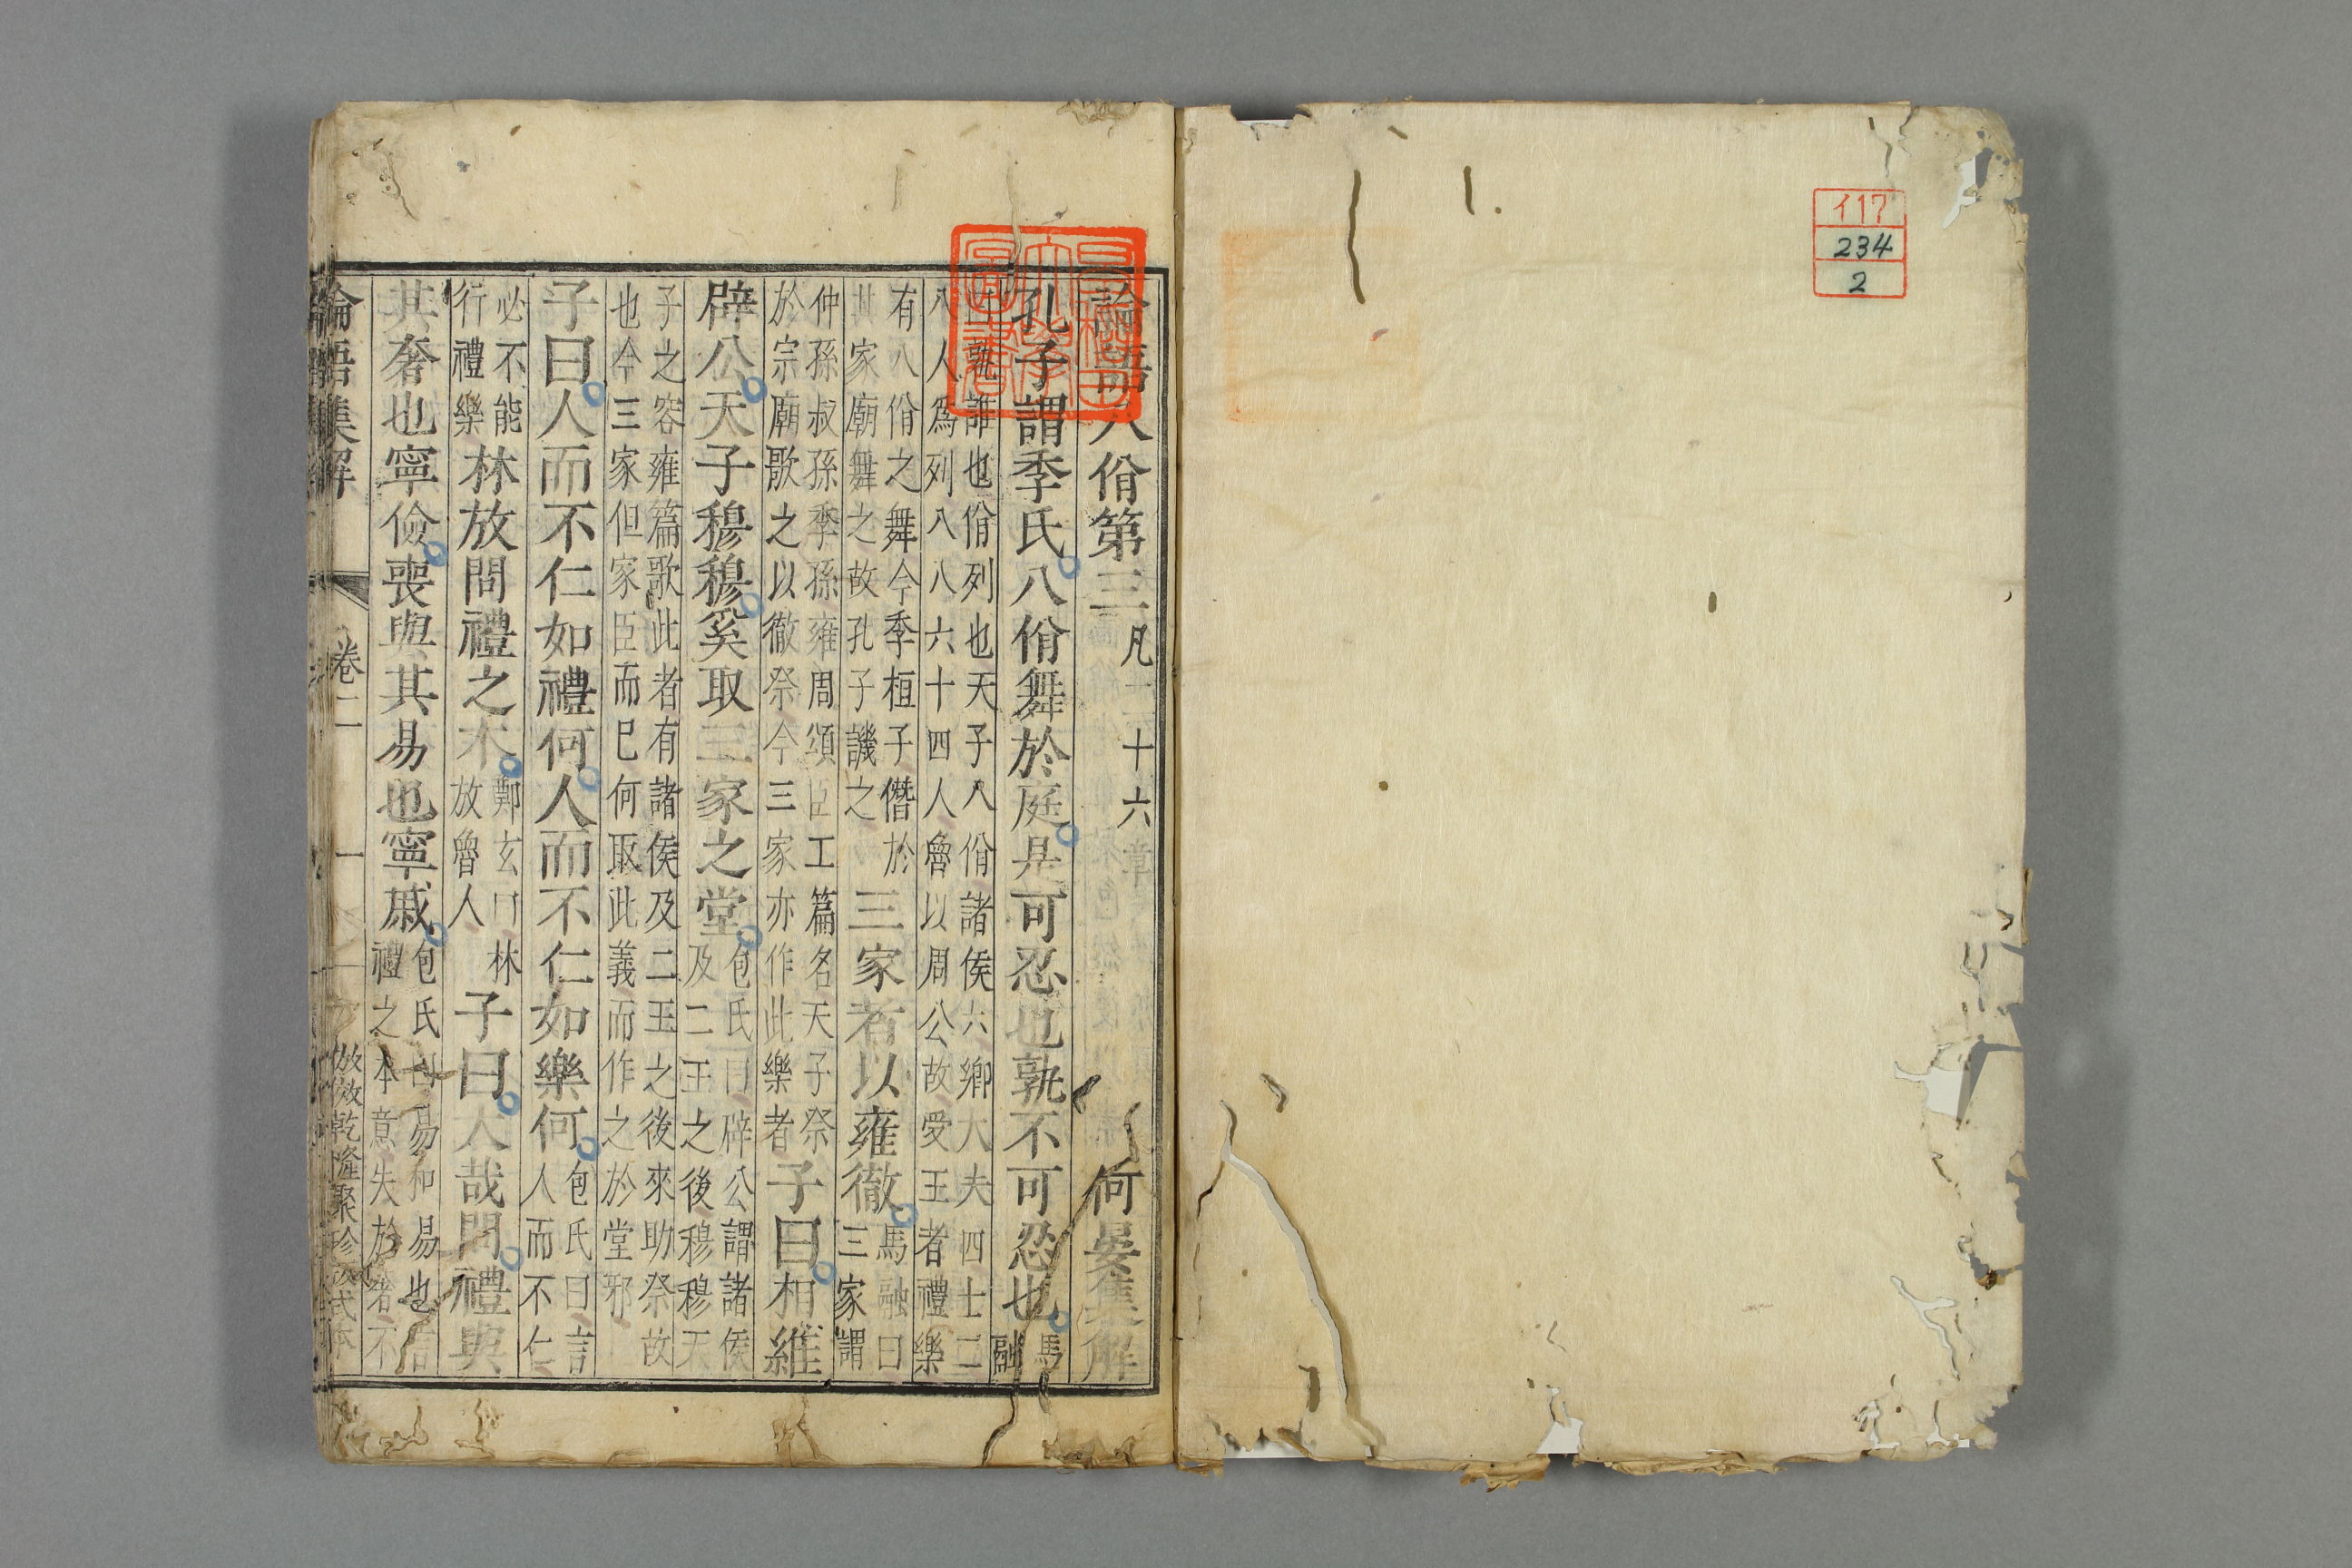 イ17
234
2
早稻田大學圖書
論語八佾第三凡二十六章 何晏集解
孔子謂季氏八佾舞於庭是可忍也孰不可忍也馬融
曰孰誰也佾列也天子八佾諸侯六卿大夫四士二
八人爲列八八六十四人魯以周公故受王者禮樂
有八佾之舞今季桓子僭於
其家廟舞之故孔子譏之
三家者以雍徹馬融曰
三家謂
仲孫叔孫季孫雍周頌臣工篇名天子祭
於宗廟歌之以徹祭今三家亦作此樂者
子曰相維
辟公天子穆穆奚取三家之堂包氏曰辟公謂諸侯
及二王之後穆穆天
子之容雍篇歌此者有諸侯及二王之後來助祭故
也今三家但家臣而已何取此義而作之於堂邪
子曰人而不仁如禮何人而不仁如樂何包氏曰言
人而不仁
必不能
行禮樂
林放問禮之本鄭玄曰林
放魯人
子曰大哉問禮與
其奢也寧儉喪與其易也寧戚包氏曰易和易也言
禮之本意失於奢不
論語集解 卷二 一 倣效乾隆聚珍板式本